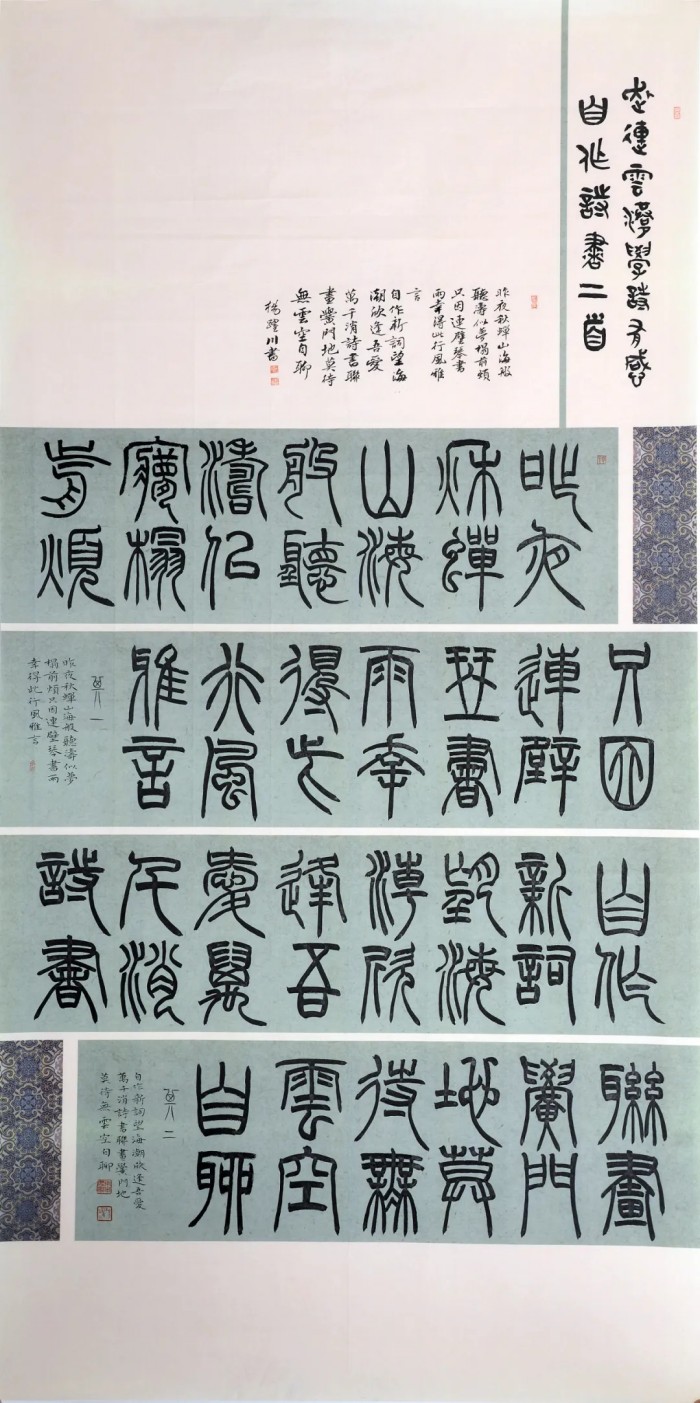 連雲港學詩有感
自作詩書二首
昨夜秋蟬山海般
聽濤似夢榻前煩
只因連璧琴書
雨幸得此行風雅
言
自作新詞望海
潮欣逢吾愛
萬千消詩書聯
畫黌門地莫待
無雲空自聊
楊躍川書
昨夜
秋蟬
山海
般聽
濤似
夢榻
前煩
只因
連璧
琴書
雨幸
得此
行風
雅言
其一
昨夜秋蟬山海般聽濤似夢
榻前煩只因連璧琴書雨
幸得此行風雅言
自作
新詞
望海
潮欣
逢吾
愛萬
千消
詩書
聯畫
黌門
地莫
待無
雲空
自聊
其二
自作新詞望海潮欣逢吾愛
萬千消詩書聯畫黌門地
莫待無雲空自聊